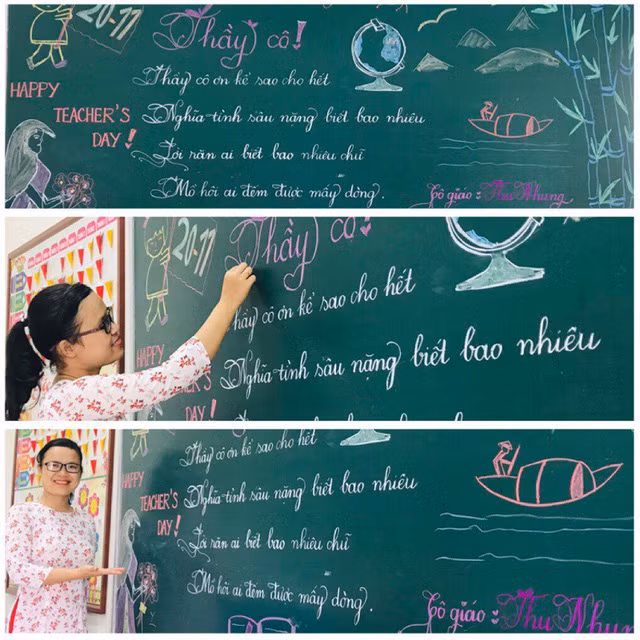 20-11
Thầy cô!
HAPPY
TEACHER'S
DAY!
Thầy cô ơn kể sao cho hết
Nghĩa tình sâu nặng biết bao nhiêu
Lời răn ai biết bao nhiêu chữ
Mồ hôi ai đếm được mấy dòng.
Cô giáo: Thu Nhung
20-11
Thầy cô
HAPPY
DAY!
Thầy cô ơn kể sao cho hết
Nghĩa tình sâu nặng biết bao nhiêu
HAPPY
TEACHER'S
DAY!
Thầy cô ơn kể sao cho hết
Nghĩa tình sâu nặng biết bao nhiêu
Lời răn ai biết bao nhiêu chữ
Mồ hôi ai đếm được mấy dòng.
Cô giáo: Thu Nhung